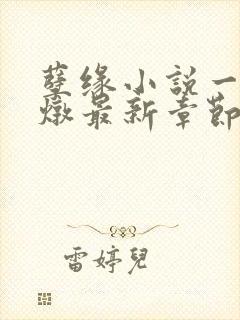 孽缘小説一
燉最新章節
雷婷兒